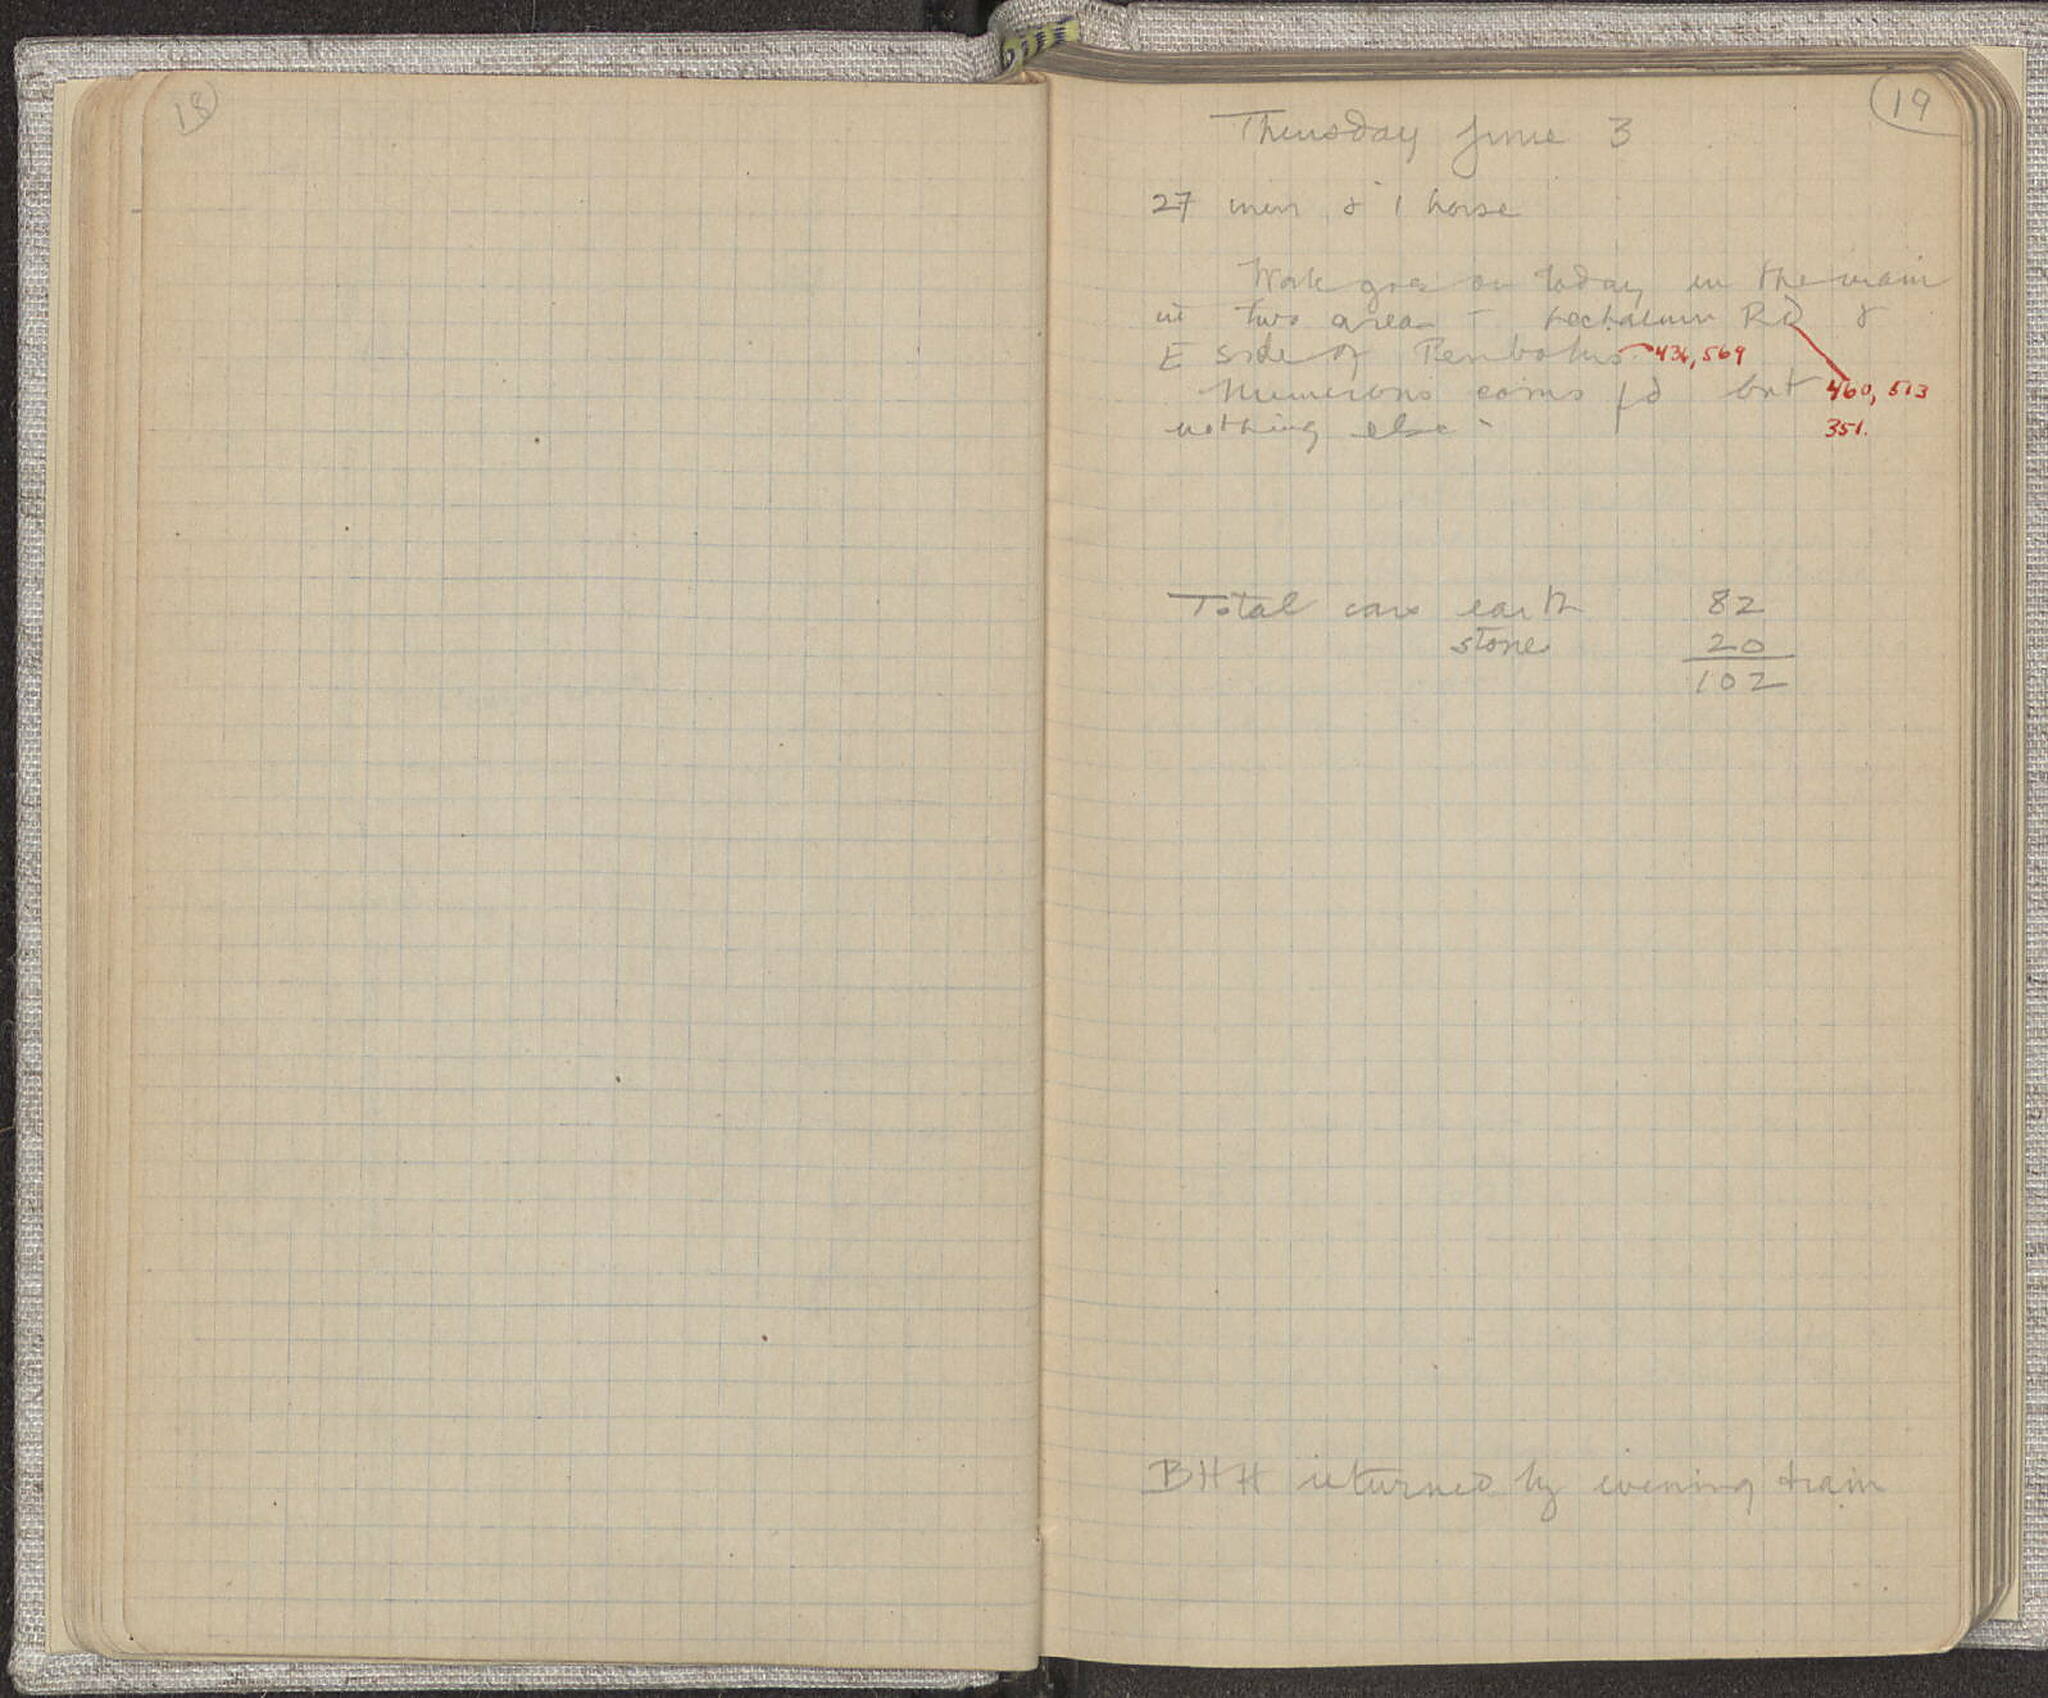 18
19
Thursday June 3
27 men & 1 horse
Work goes on today in the main
in two areas - Lechaeum Rd &
E side of Peribolus 436, 569
Numerous coins fd but 460, 513
nothing else - 351.
Total cars earth 82
stone 20
102
BHH returned by evening train